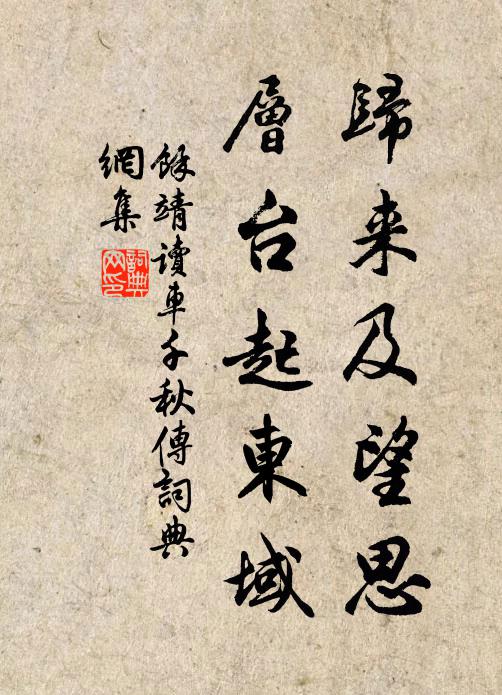 歸来及望思
層台起東域
餘靖讀車千秋傳詞典
網集
詞典
网印